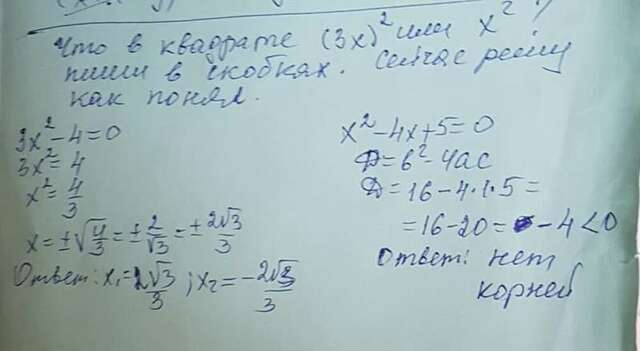 Что в квадрате (3x)² или x²?
пиши в скобках. Сейчас решу
как понял.
3x²-4=0
3x²=4
x²=4/3
x=±√4/3=±2/√3=±2√3/3
Ответ: x₁=2√3/3; x₂=-2√3/3
x²-4x+5=0
D=b²-4ac
D=16-4·1·5=
=16-20=-4<0
Ответ: нет
корней